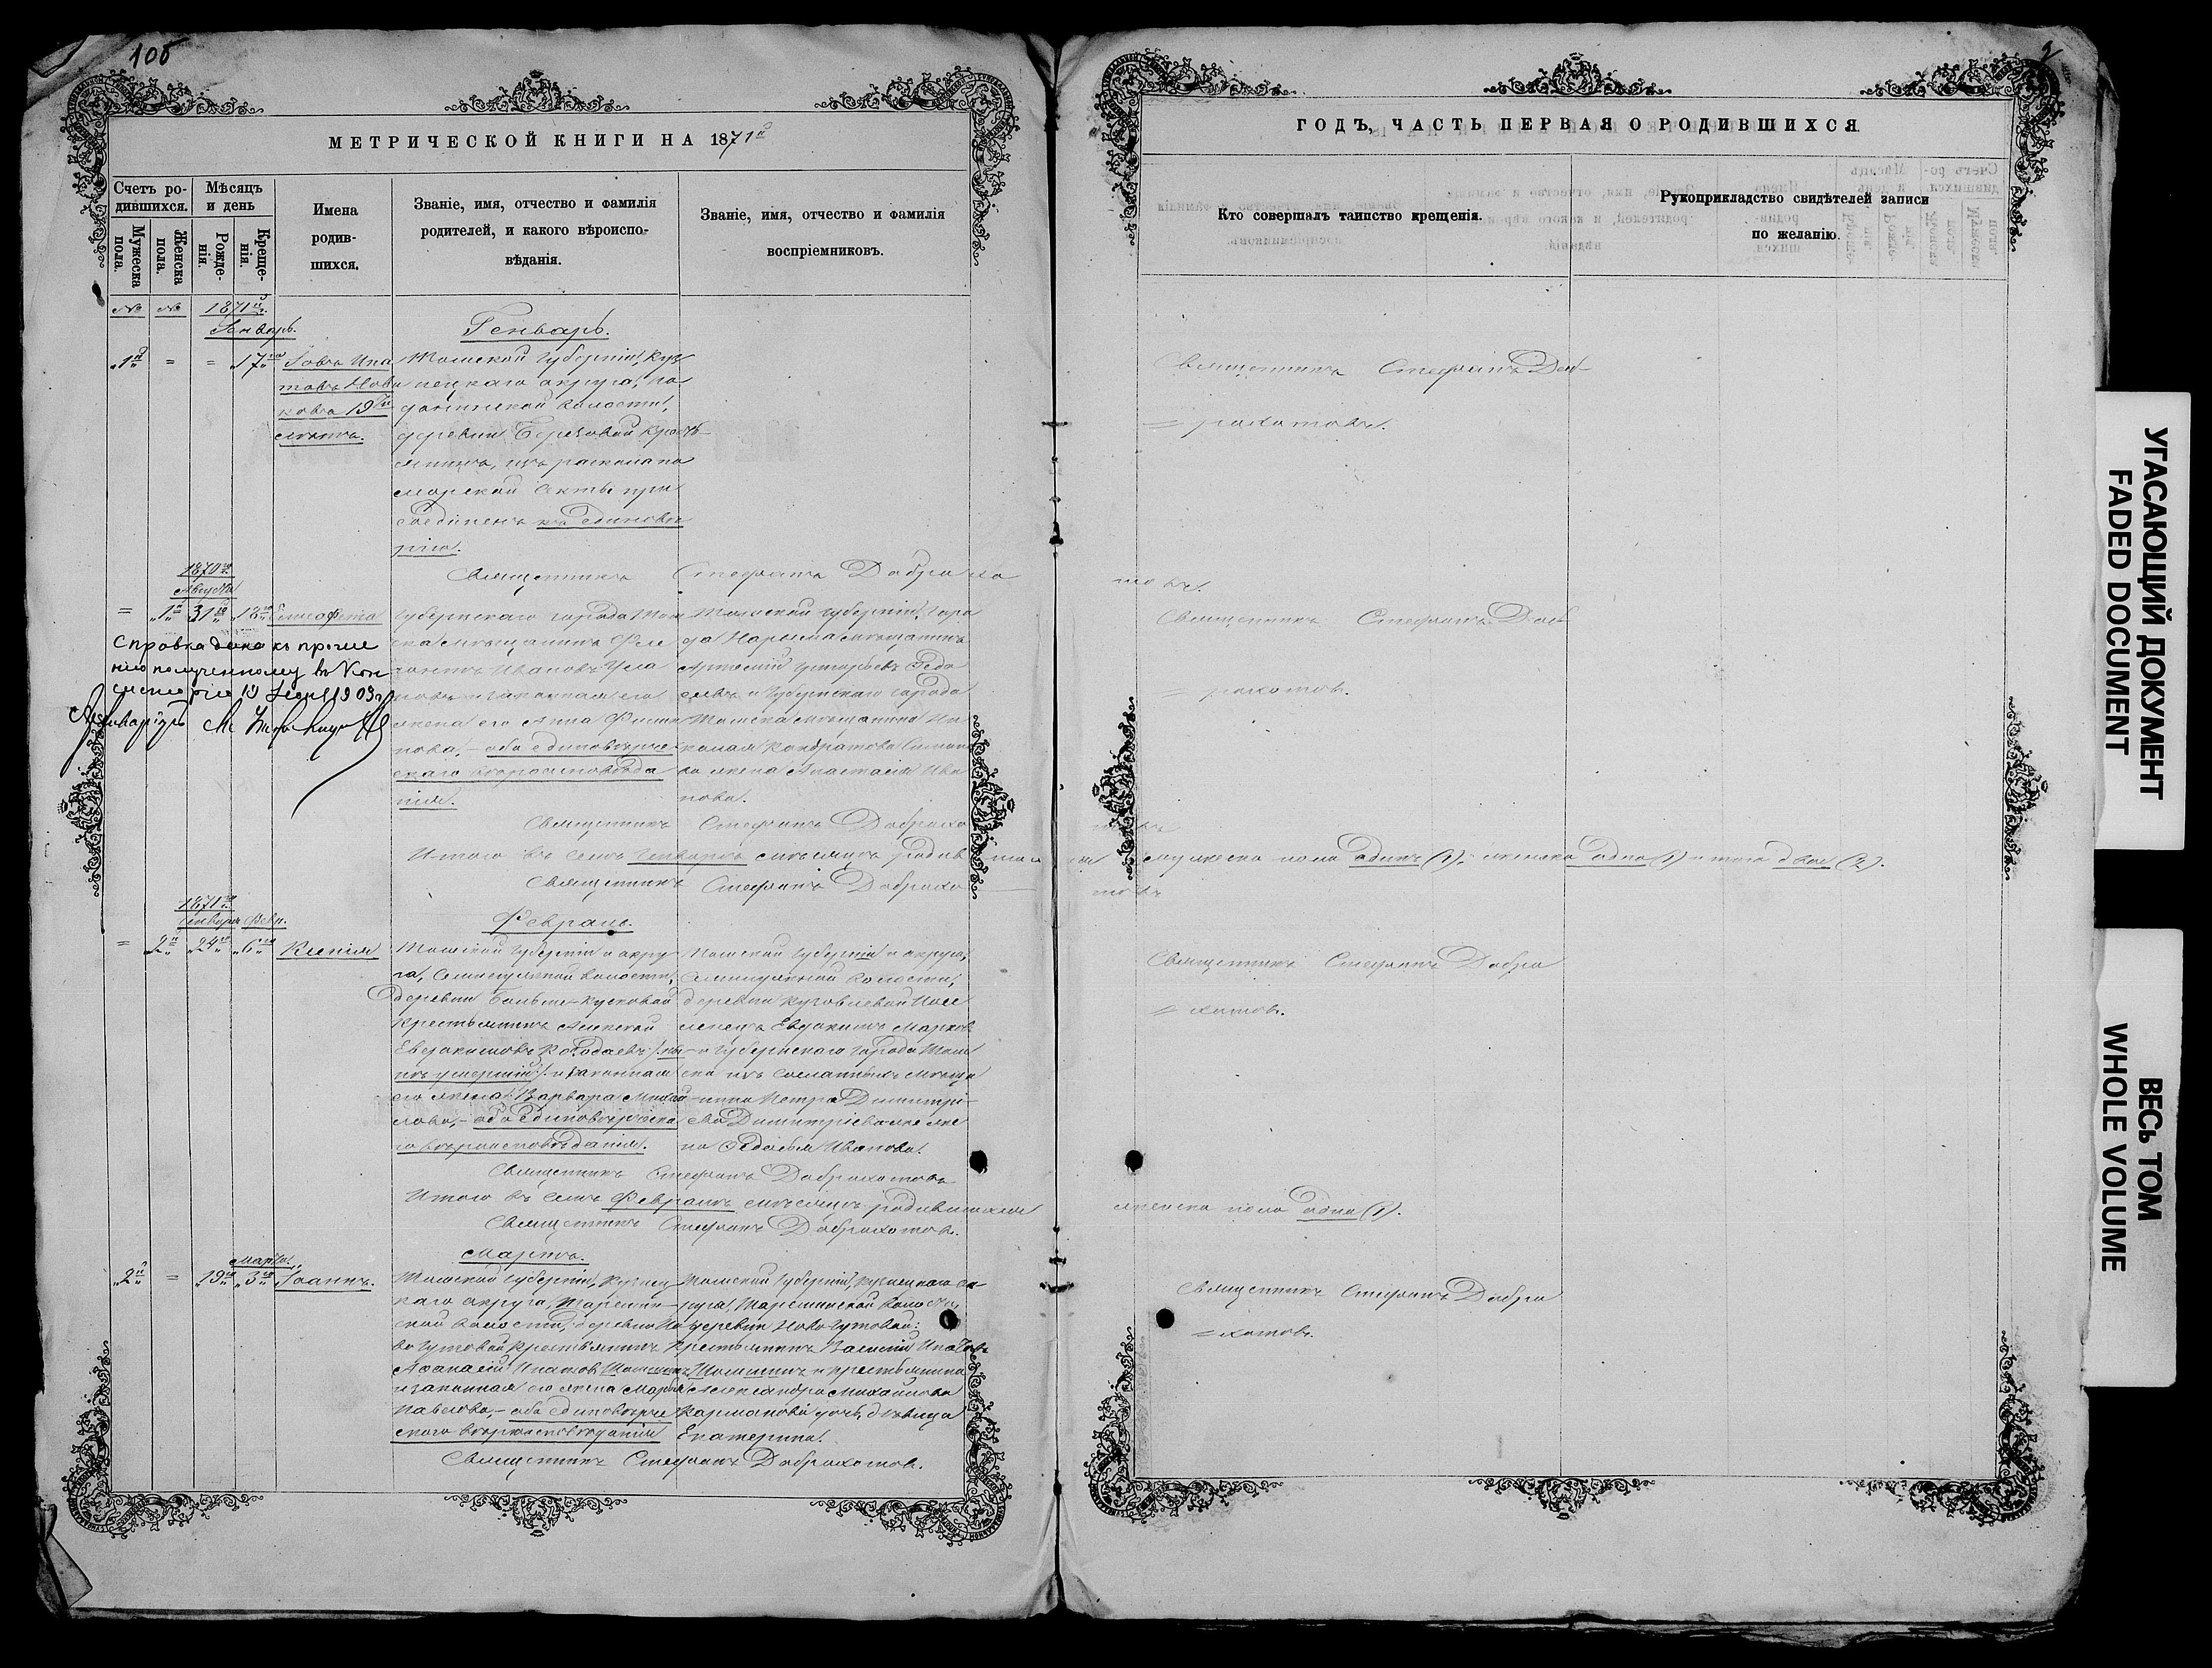 105
МЕТРИЧЕСКОЙ КНИГИ НА 1871й
Счетъ ро-
дившихся.
Мужеска
пола.
Женска
пола.
Мѣсяцъ
и день
Рожде-
нія.
Креще-
нія.
Имена
родив-
шихся.
Званіе, имя, отчество и фамилія
родителей, и какого вѣроиспо-
вѣданія.
Званіе, имя, отчество и фамилія
воспріемниковъ.
№ № 1871й
Генварь.
Генварь.
1й = = 17го
Іовъ Ипа
товъ Нови
ковъ 19ти
лѣтъ.
Томской губерніи, Куз
нецкаго округа,
волости,
деревни Березовой кресть
янинъ, изъ раскола по
морской секты при
соединенъ къ единовѣ
рію.
Священникъ Стефанъ Доброхо
1870го
Августа
= 1й 31го 18го Елисавета
Губернскаго города Том
ска мѣщанинъ
Ивановъ
и законная его
жена его Анна Филип
пова, оба единовѣрче
скаго вѣроисповѣда
нія.
Томской губерніи, горо
да Нарыма мѣщанинъ
Артемій Григорьевъ Ѳедо
ѣевъ и губернскаго города
Томска мѣщанина Ни
колая Кондратова
жена Анастасія Ива
нова.
Справка дана къ проше
нію полученному въ Кон
систоріи 19 1903 г.
Архиваріусъ
Священникъ Стефанъ Доброхо
Итого въ семъ Генварѣ мѣсяцѣ родив
Священникъ Стефанъ Доброхо
1871го
Генварь Февр.
Февраль.
= 2й 24го 6го Ксенія
Томской губерніи и окру
га, Семилужной волости,
деревни Больше-Кусковой
крестьянинъ Алексѣй
Евдокимовъ
умершій и законная
его жена Варвара Михай
лова, оба единовѣрческа
го вѣроисповѣданія.
Томской губерніи и округа,
Семилужной волости,
деревни Кузовлевой посе
ленецъ Евдокимъ Марковъ
и губернскаго города Том
ска изъ ссыльныхъ мѣща
нина Петра Димитрі
ева Димитріева же же
на Ѳедосья Иванова.
Священникъ Стефанъ Доброхотовъ
Итого въ семъ Февралѣ мѣсяцѣ родившихся
Священникъ Стефанъ Доброхотовъ.
Мартъ.
Марта.
2й = 19го 3го Іоаннъ.
Томской губерніи, Кузнец
каго округа, Тарсмин-
ской волости, деревни Но
во Гутовой крестьянинъ
Аѳанасій Ипатовъ
и законная его жена Марѳа
Павлова, оба единовѣрче
скаго вѣроисповѣданія
Томской губерніи, Кузнецкаго ок-
руга, Тарсминской волости,
деревни Ново Гутовой:
крестьянинъ Василій Ипатовъ
и крестьянина
Александра Михайлова
Карманова дочь, дѣвица
Екатерина.
Священникъ Стефанъ Доброхотовъ.
2
ГОДЪ, ЧАСТЬ ПЕРВАЯ О РОДИВШИХСЯ
Кто совершалъ таинство крещенія.
Рукоприкладство свидѣтелей записи
по желанію.
Священникъ Стефанъ Доб
= рохотовъ.
товъ.
Священникъ Стефанъ Доб
= рохотовъ.
товъ
мужеска пола одинъ (1), женска одна (1) итого двое (2).
товъ
Священникъ Стефанъ Добро
= хотовъ.
женска пола одна (1).
Священникъ Стефанъ Добро
= хотовъ.
УГАСАЮЩИЙ ДОКУМЕНТ
FADED DOCUMENT
ВЕСЬ ТОМ
WHOLE VOLUME